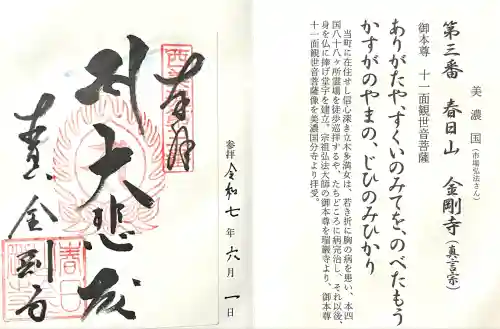 美濃国(市場弘法さん)
第三番 春日山 金剛寺(真言宗)
御本尊 十一面観世音菩薩
ありがたや、すくいのみてを、のべたもう
かすがのやまの、じひのみひかり
当町に在住せし信心深き立木多満女は、若き折に胸の病を患い、本四
国八十八ヶ所霊場を徒歩巡拝するや、たちどころに病完治し、それ以後、
身を仏に捧げ堂宇を建立。宗祖弘法大師の御本尊を瑠巌寺より、御本尊
十一面観世音菩薩像を美濃国分寺より拝受。
参拝 令和七年六月一日
奉拝
大悲殿
金剛寺
春日